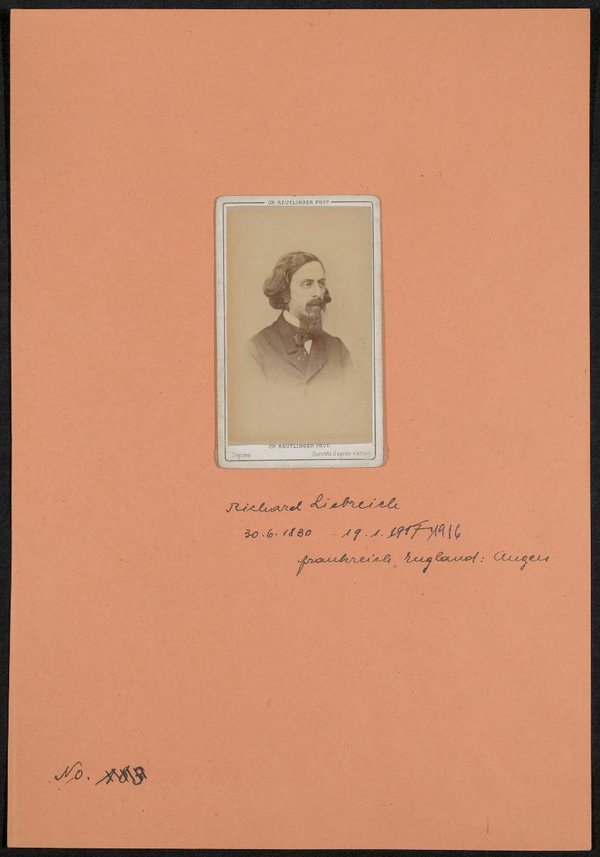 CH. REUTLINGER PHOT.
CH. REUTLINGER PHOT.
Déposé Garanti d'après nature
Richard Liebreich
30.6.1830 19.1.1917 1916
Frankreich, England: Augen
No.